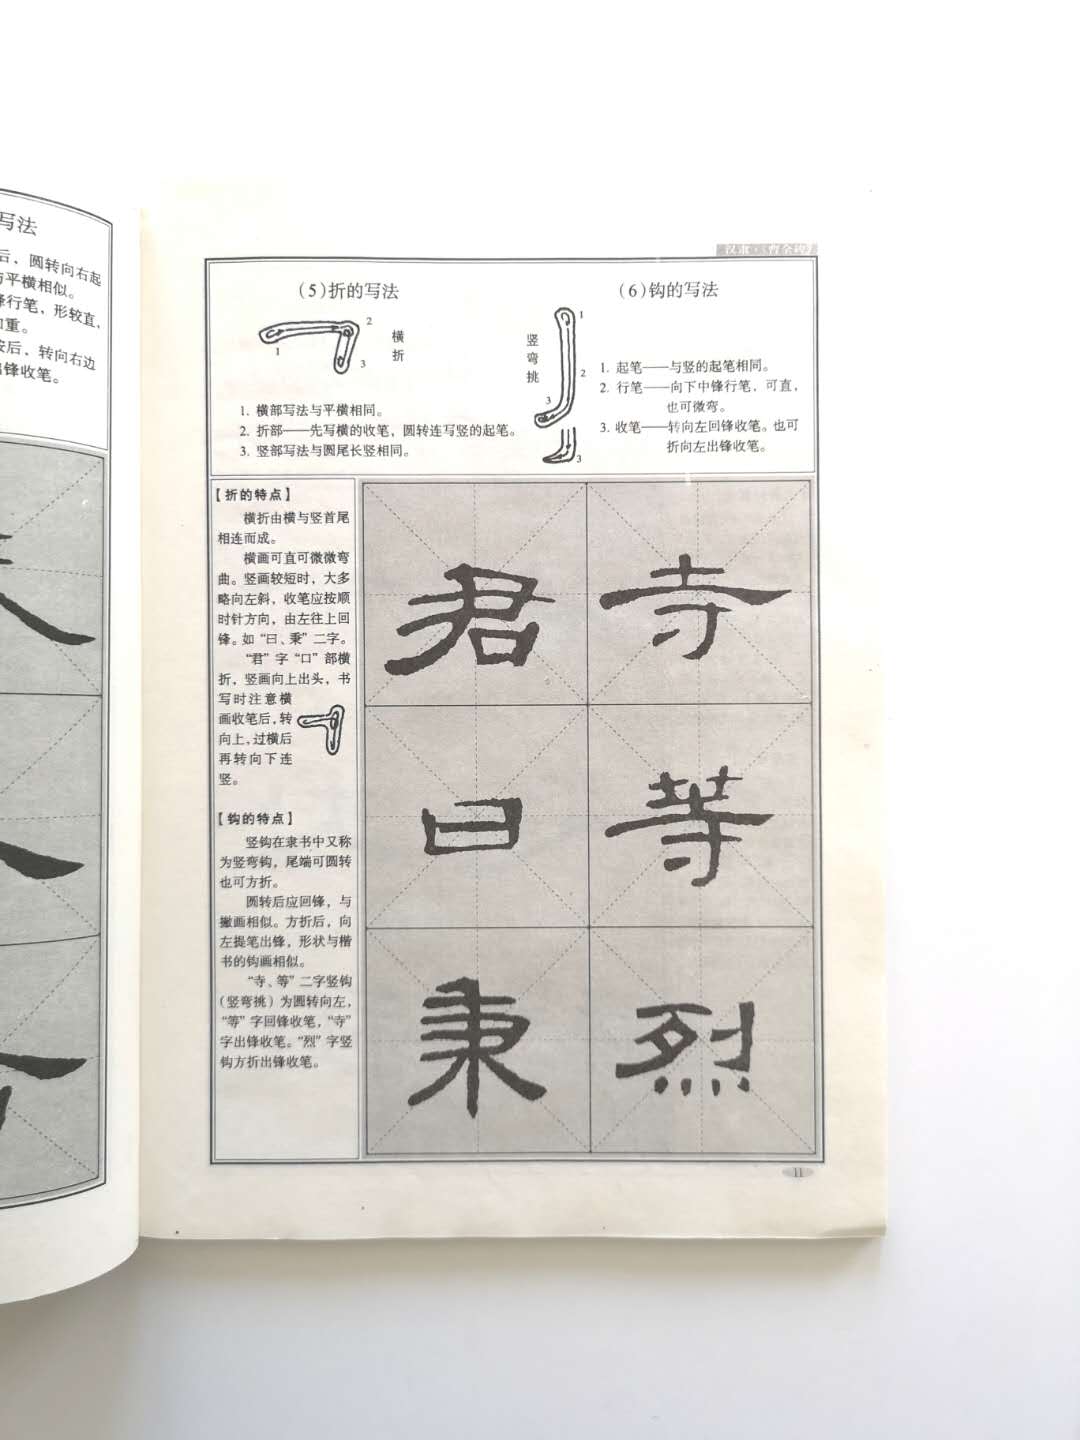 写法
后，圆转向右起
与平横相似。
锋行笔，形较直，
加重。
按后，转向右边
出锋收笔。
汉隶·曹全碑
（5）折的写法
2
横
折
1
3
1. 横部写法与平横相同。
2. 折部——先写横的收笔，圆转连写竖的起笔。
3. 竖部写法与圆尾长竖相同。
（6）钩的写法
1
竖
弯
挑
2
3
3
1. 起笔——与竖的起笔相同。
2. 行笔——向下中锋行笔，可直，
也可微弯。
3. 收笔——转向左回锋收笔。也可
折向左出锋收笔。
【折的特点】
横折由横与竖首尾
相连而成。
横画可直可微微弯
曲。竖画较短时，大多
略向左斜，收笔应按顺
时针方向，由左往上回
锋。如“曰、秉”二字。
“君”字“口”部横
折，竖画向上出头，书
写时注意横
画收笔后，转
向上，过横后
再转向下连
竖。
【钩的特点】
竖钩在隶书中又称
为竖弯钩，尾端可圆转
也可方折。
圆转后应回锋，与
撇画相似。方折后，向
左提笔出锋，形状与楷
书的钩画相似。
“寺、等”二字竖钩
（竖弯挑）为圆转向左，
“等”字回锋收笔，“寺”
字出锋收笔。“烈”字竖
钩方折出锋收笔。
君
寺
曰
等
秉
烈
11